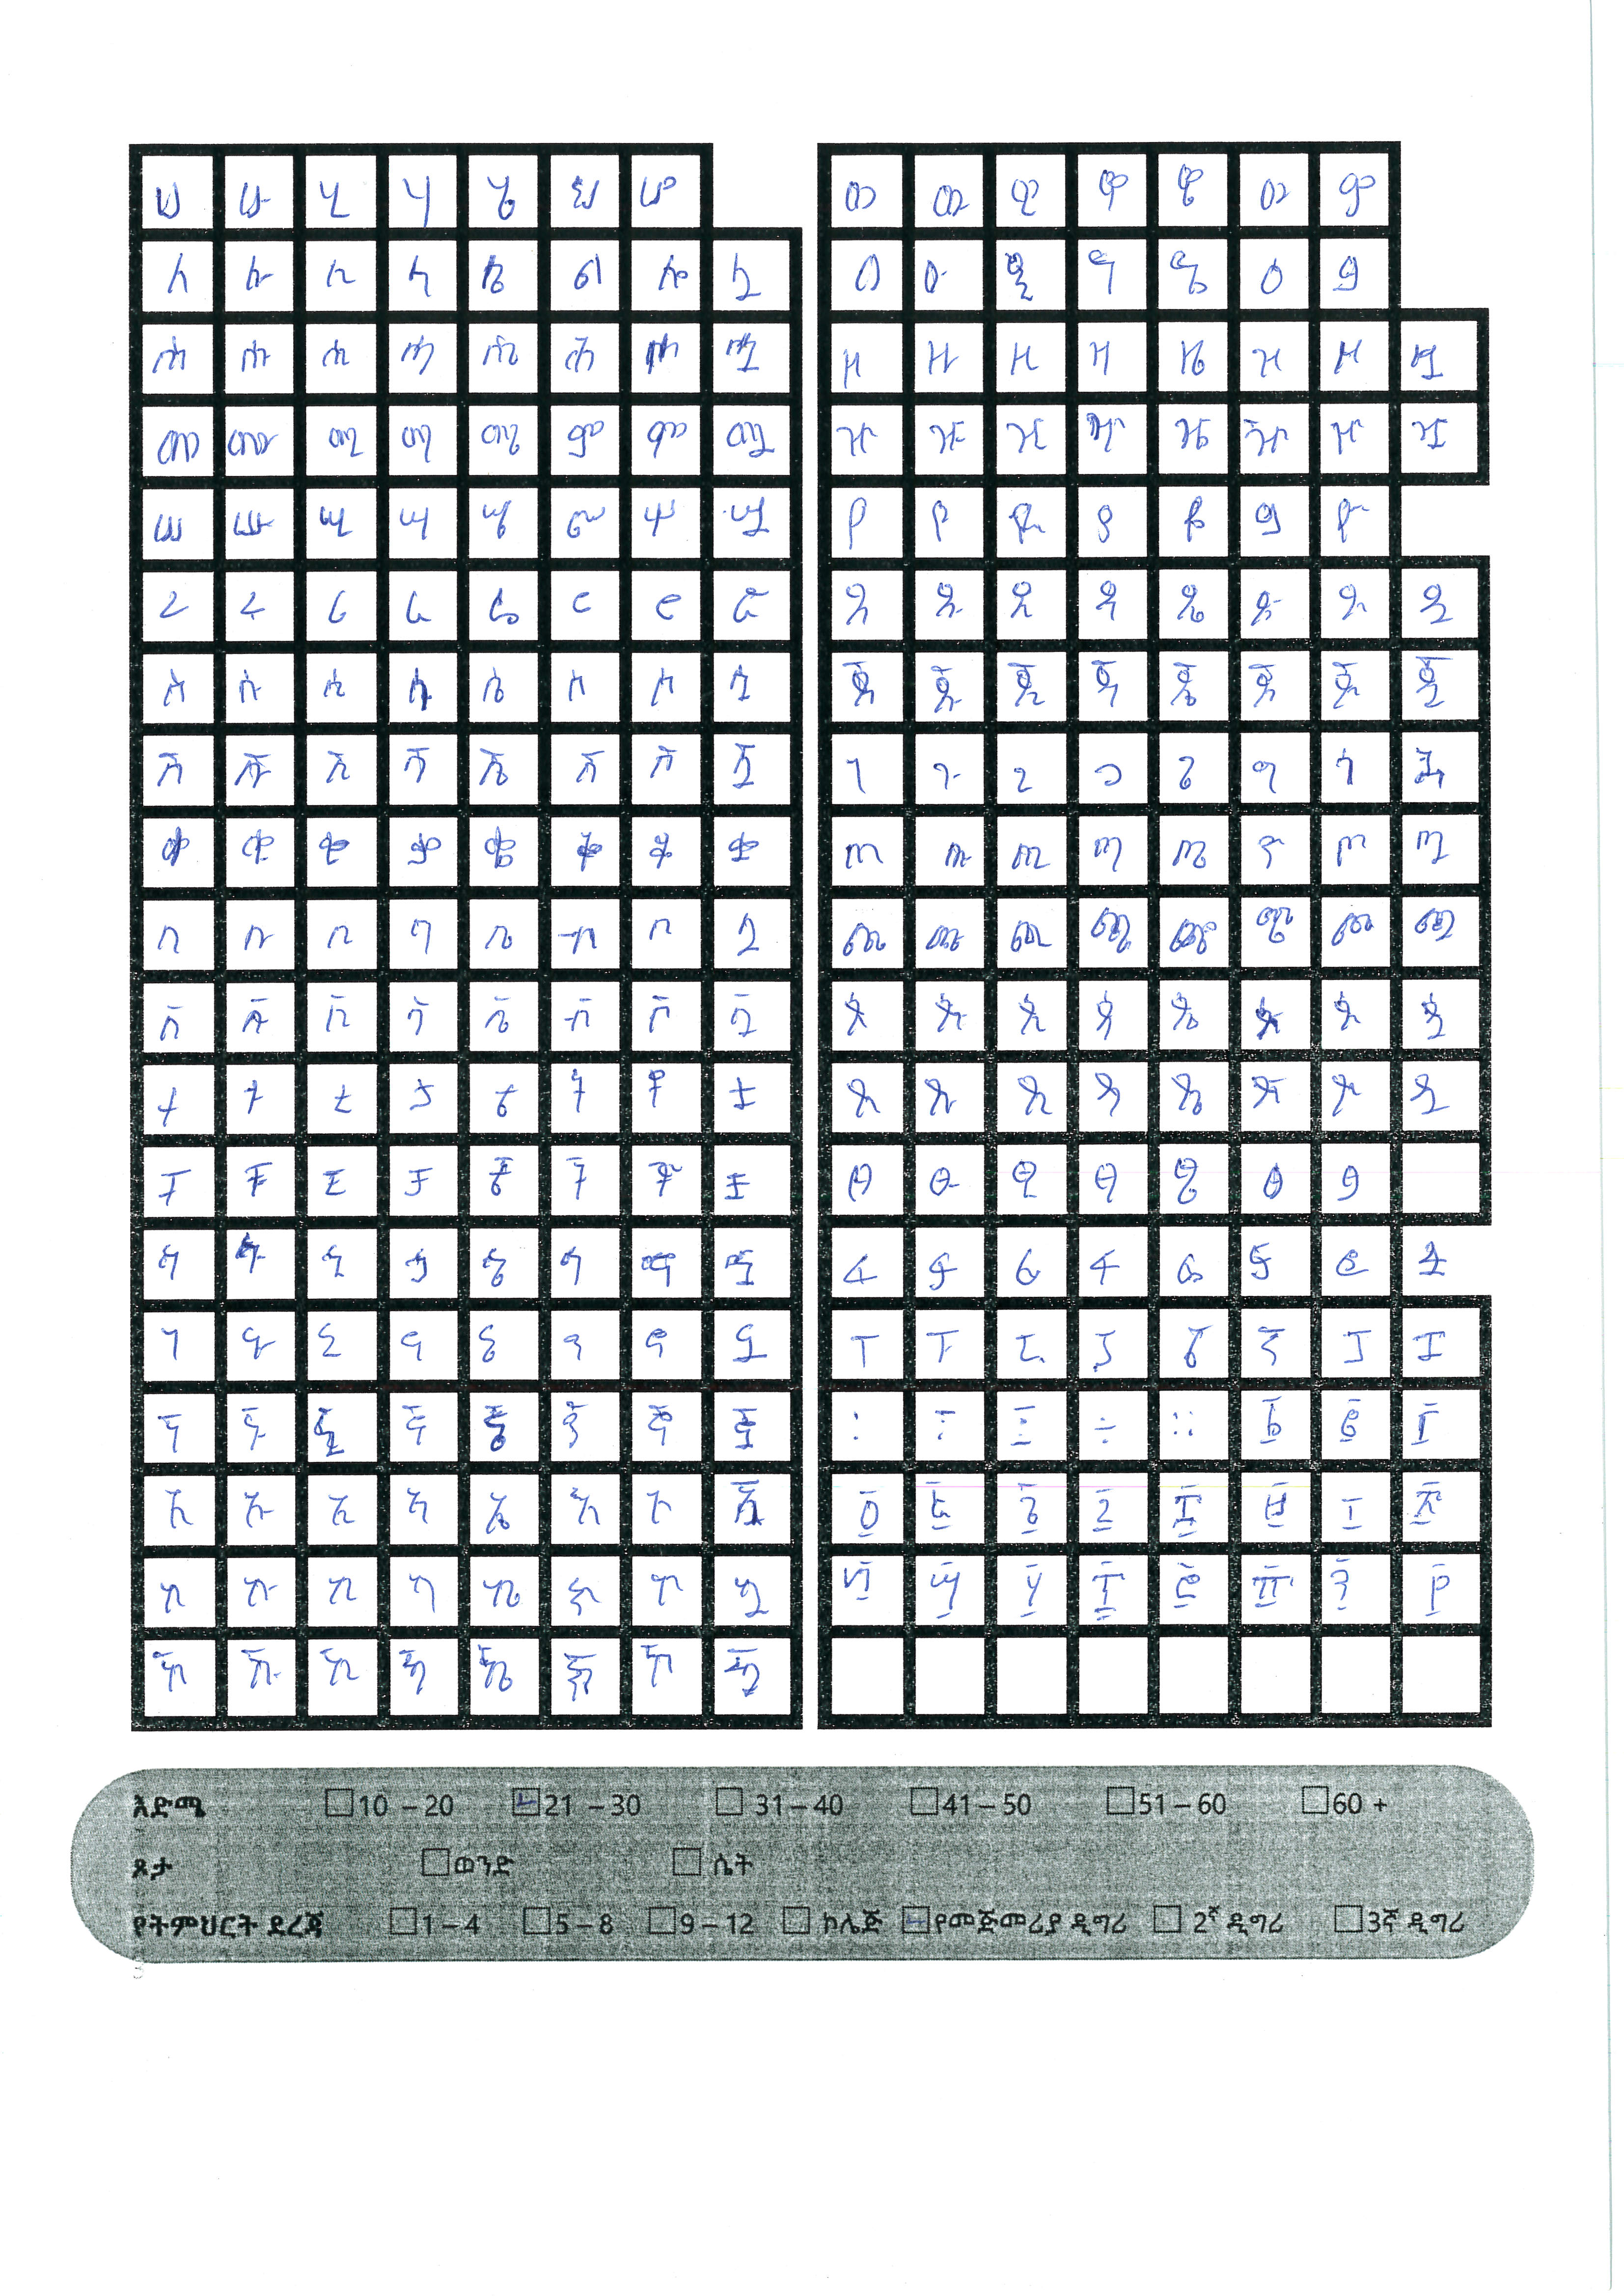 ሀ ሁ ሂ ሃ ሄ ህ ሆ
ለ ሉ ሊ ላ ሌ ል ሎ ሏ
ሐ ሑ ሒ ሓ ሔ ሕ ሖ ሗ
መ ሙ ሚ ማ ሜ ም ሞ ሟ
ሠ ሡ ሢ ሣ ሤ ሥ ሦ ሧ
ረ ሩ ሪ ራ ሬ ር ሮ ሯ
ሰ ሱ ሲ ሳ ሴ ስ ሶ ሷ
ሸ ሹ ሺ ሻ ሼ ሽ ሾ ሿ
ቀ ቁ ቂ ቃ ቄ ቅ ቆ ቋ
በ ቡ ቢ ባ ቤ ብ ቦ ቧ
ቨ ቩ ቪ ቫ ቬ ቭ ቮ ቯ
ተ ቱ ቲ ታ ቴ ት ቶ ቷ
ቸ ቹ ቺ ቻ ቼ ች ቾ ቿ
ኀ ኁ ኂ ኃ ኄ ኅ ኆ ኋ
ነ ኑ ኒ ና ኔ ን ኖ ኗ
ኘ ኙ ኚ ኛ ኜ ኝ ኞ ኟ
አ ኡ ኢ ኣ ኤ እ ኦ ኧ
ከ ኩ ኪ ካ ኬ ክ ኮ ኳ
ኸ ኹ ኺ ኻ ኼ ኽ ኾ ዃ
ወ ዉ ዊ ዋ ዌ ው ዎ
ዐ ዑ ዒ ዓ ዔ ዕ ዖ
ዘ ዙ ዚ ዛ ዜ ዝ ዞ ዟ
ዠ ዡ ዢ ዣ ዤ ዥ ዦ ዧ
የ ዩ ዪ ያ ዬ ይ ዮ
ደ ዱ ዲ ዳ ዴ ድ ዶ ዷ
ጀ ጁ ጂ ጃ ጄ ጅ ጆ ጇ
ገ ጉ ጊ ጋ ጌ ግ ጎ ጓ
ጠ ጡ ጢ ጣ ጤ ጥ ጦ ጧ
ጨ ጩ ጪ ጫ ጬ ጭ ጮ ጯ
ጰ ጱ ጲ ጳ ጴ ጵ ጶ ጷ
ጸ ጹ ጺ ጻ ጼ ጽ ጾ ጿ
ፀ ፁ ፂ ፃ ፄ ፅ ፆ
ፈ ፉ ፊ ፋ ፌ ፍ ፎ ፏ
ፐ ፑ ፒ ፓ ፔ ፕ ፖ ፗ
፡ ፤ ፫ ÷ ። ፩ ፪ ፫
፬ ፭ ፮ ፯ ፰ ፱ ፲ ፳
፴ ፵ ፶ ፷ ፸ ፹ ፺ ፻
እድሜ 10 – 20 21 – 30 31 – 40 41 – 50 51 – 60 60 +
ጾታ ወንድ ሴት
የትምህርት ደረጃ 1 – 4 5 – 8 9 – 12 ኮሌጅ የመጀመሪያ ዲግሪ 2ኛ ዲግሪ 3ኛ ዲግሪ